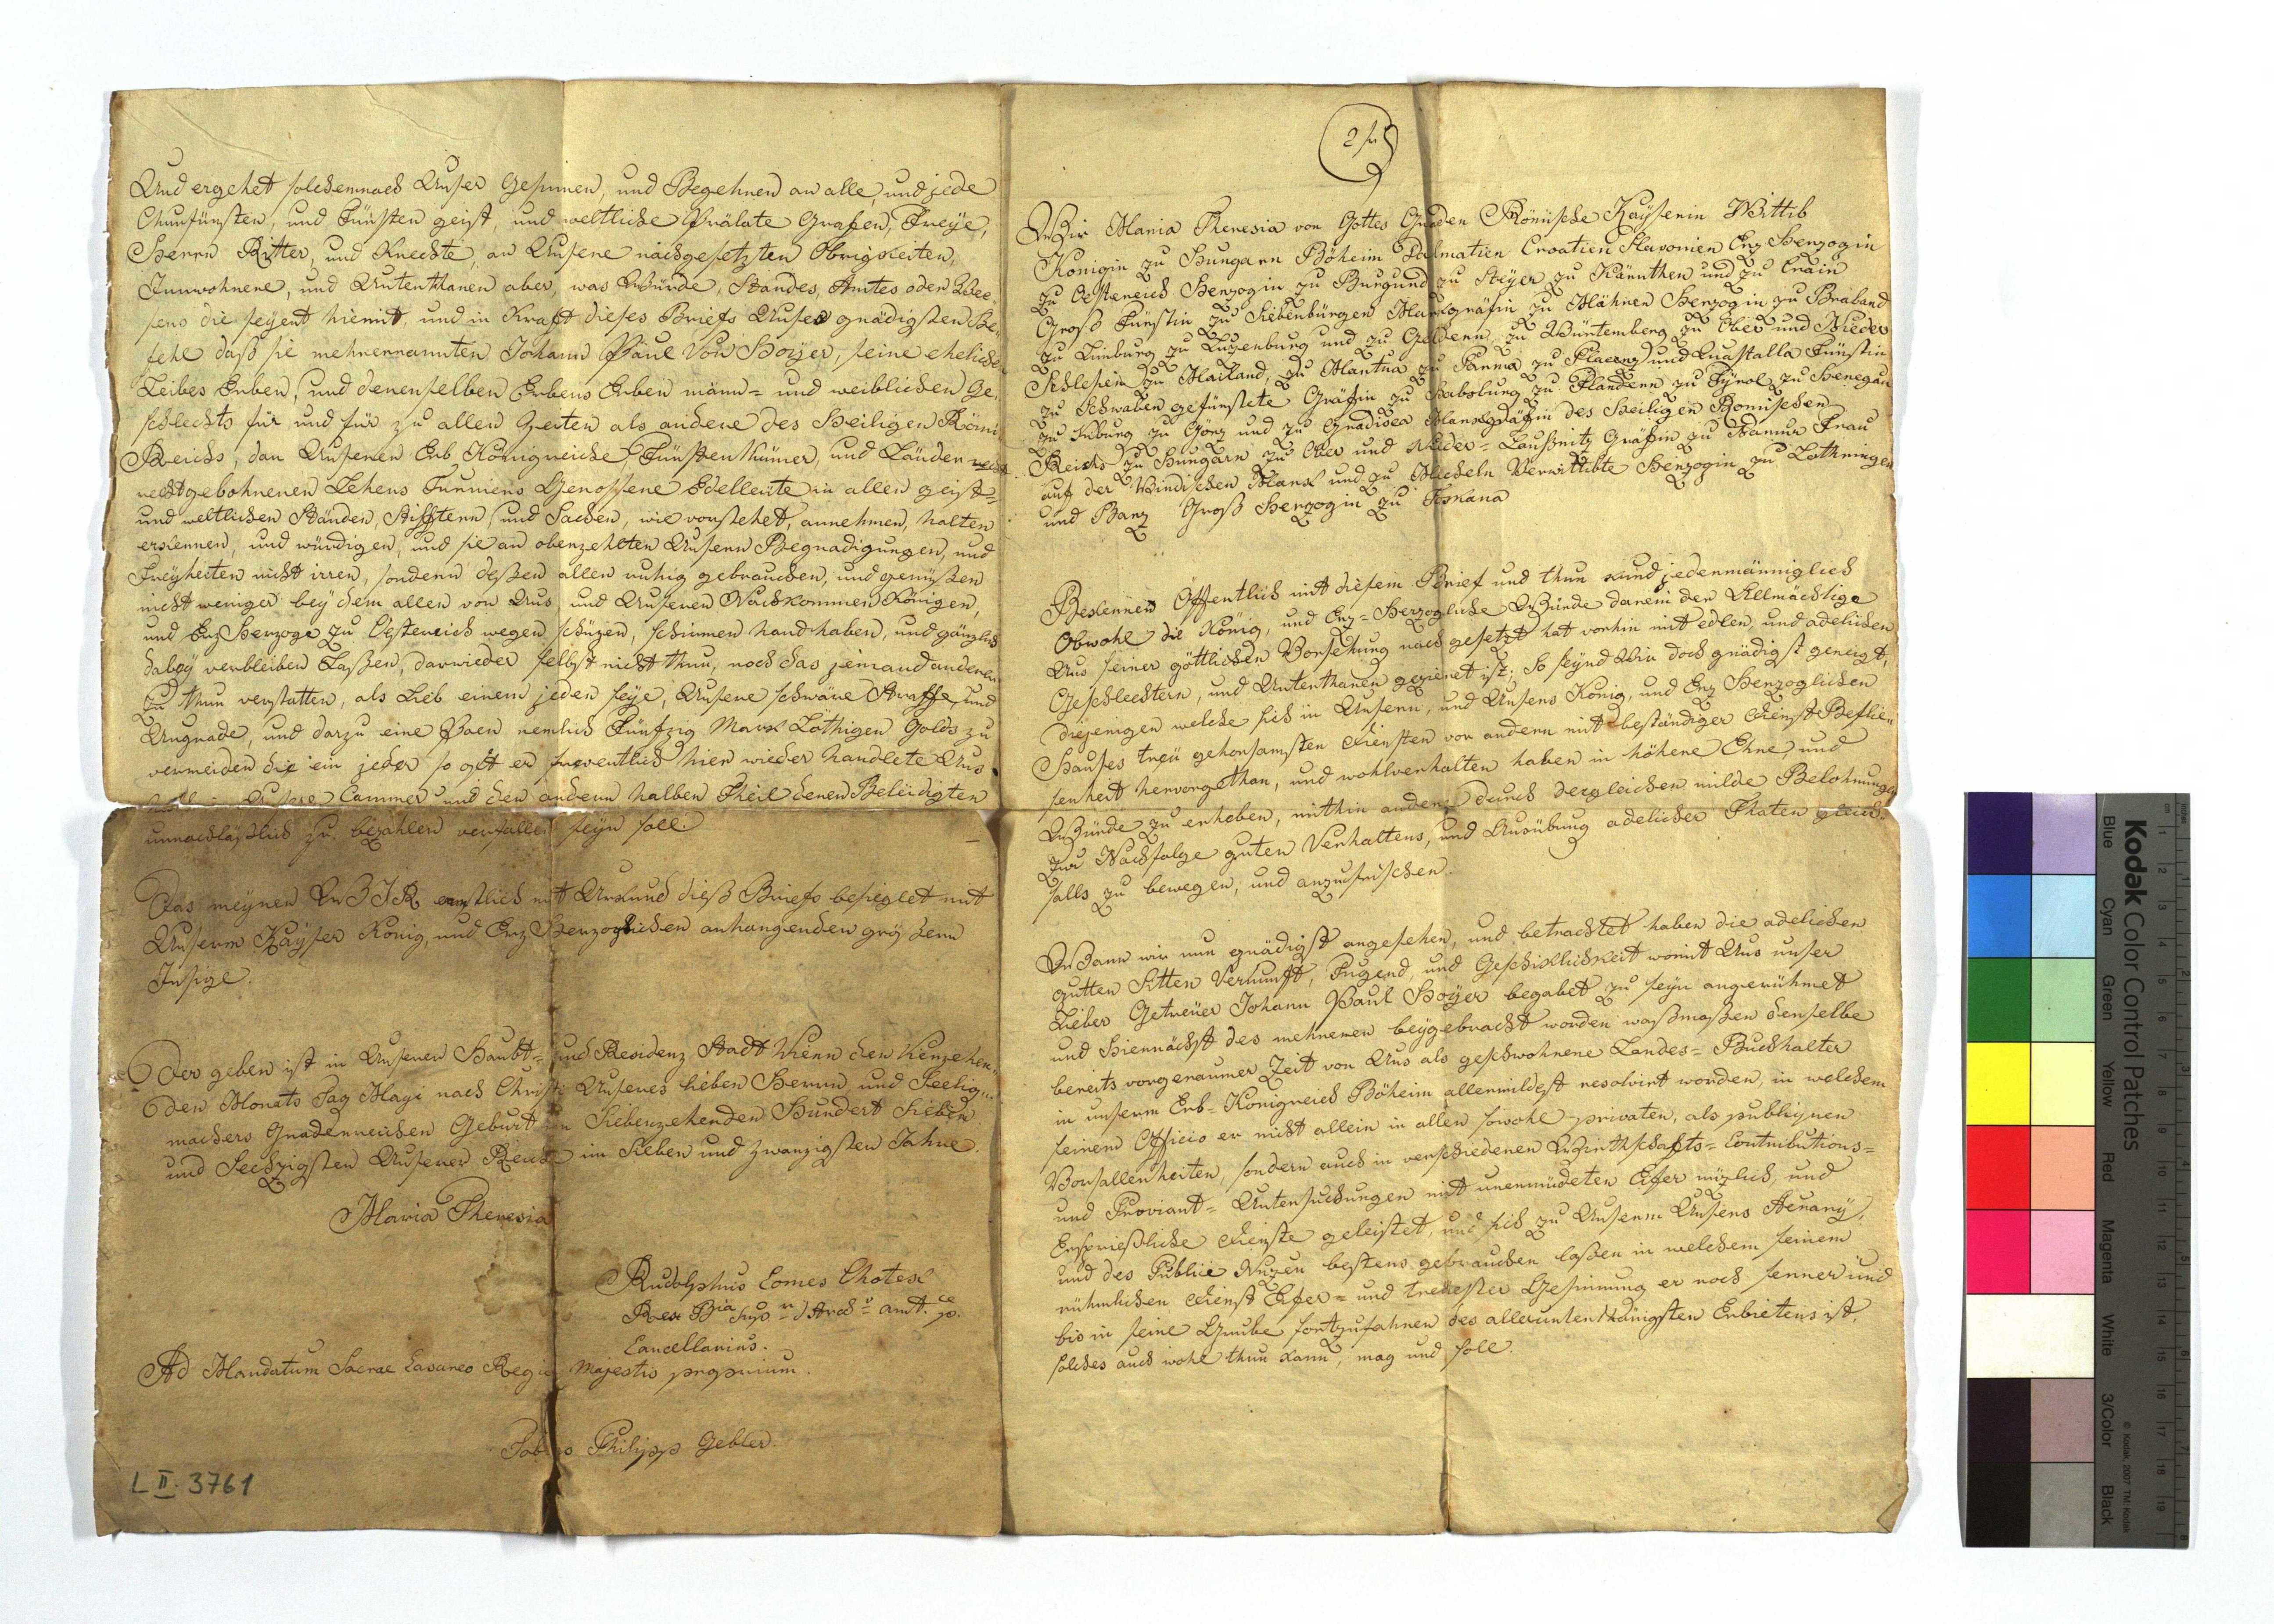 Wir Maria Theresia von Gottes Gnaden Römische Kayserin Wittib
Königin zu Hungarn Böheim Dalmatien Croatien Slavonien Erz Herzogin
zu Oesterreich Herzogin zu Burgund zu Steyer zu Kärnthen und zu Crain
Groß Fürstin zu Siebenbürgen Markgräfin zu Mähren Herzogin zu Braband
zu Limburg zu Luzenburg und zu Geldern zu Würtemberg zu Ober und Nieder
Schlesien zu Mailand, zu Mantua zu Parma zu Placenz und Quastalla Fürstin
zu Schwaben gefürstete Gräfin zu Habsburg zu Flandern zu Tyrol zu Henegau
zu Kiburg zu Görz und zu Gradisca Markgräfin des Heiligen Römischen
Reichs zu Burgau zu Ober und Nieder-Laußnitz Gräfin zu Namur Frau
auf der Windischen Mark und zu Mecheln Verwittibte Herzogin zu Lothringen
und Barr Groß Herzogin zu Toscana
Bekennen Öffentlich mit diesem Brief und thun kund jedermänniglich
Obwohl die König, und Erz-Herzogliche Würde darein der Allmächtige
Uns seiner göttlichen Vorsehung nach gesetzt hat vorhin mit edlen, und adelichen
Geschlechtern, und Unterthanen gezieret ist; So seynd Wir doch gnädigst geneigt,
diejenigen welche sich in Unsern, und Unsers König, und Erz Herzoglichen
Hauses treü gehorsamsten diensten vor andern mit beständiger dienst Beflie-
senheit hervorgethan, und wohlverhalten haben in höhere Ehre, und
Würde zu erheben, mithin andere durch dergleichen milde Belohnungen
zur Nachfolge guten Verhaltens, und Ausübung adelicher Thaten gleich-
falls zu bewegen, und anzufrischen.
Wann wir nun gnädigst angesehen, und betrachtet haben die adelichen
gutten Sitten Vernunfft, Tugend, und Geschicklichkeit womit Uns unser
Lieber Getreüer Johann Paul Hoyer begabet zu seyn angerühmet
und Hiernächst des mehreren beygebracht worden waßmaßen denselbe
bereits vorgeraumer Zeit von Uns als geschwohrene Landes-Buchhalter
in unserm Erb-Königreich Böheim allermildest resolvirt worden, in welchem
seinem Officio er nicht allein in allen sowohl privaten, als publiquen
Vorfallenheiten, sondern auch in verschiedenen Wirthschafts-Contributions-
und Proviant-Untersuchungen mit unermüdeten Eifer nüzlich, und
Ersprießliche dienste geleistet, und sich zu Unserm Unsers Aerary,
und des Publici Nuzen bestens gebrauchen laßen in welchem seinem
rühmlichen dienst Eifer- und treuester Gesinnung er noch ferner und
bis in seine Grube fortzufahren des allerunterthänigsten Erbietens ist,
solches auch wohl thun kann, mag und soll.
Und ergehet solchemnach Unser Gesinnen, und Begehren an alle, und jede
Churfürsten, und Fürsten geist, und weltliche Prälate Grafen, Freye,
Herrn Ritter, und Knechte, an Unsere nachgesetzten Obrigkeiten,
Innwohnere, und Unterthanen aber, was Würde, Standes, Amtes oder Wee-
sens die seyent hiemit, und in Kraft dieses Briefs Unser gnädigsten Be-
fehl daß sie mehrernannten Johann Paul Von Hoyer, seine eheliche
Leibes Erben, und denenselben Erbens Erben männ- und weiblichen Ge-
schlechts für und für zu allen Zeiten als andere des Heiligen Römi
Reichs, dan Unseren Erb Königreiche, Fürstenthümer, und Länder
rechtgebohrenen Lehens Turniers Genossene Edelleute in allen geist-
und weltlichen Ständen, Stifftern, und Sachen, wie vorstehet, annehmen, halten
erkennen, und würdigen, und sie an oberzehlten Unsern Begnadigungen, und
Freyheiten nicht irren, sondern deßen allen ruhig gebrauchen, und genüßen
nicht weniger bey dem allen von Uns und Unseren Nachkommen Königen,
und Erz Herzoge zu Oesterreich wegen schüzen, schirmen hand haben, und gänzlich
dabey verbleiben Laßen, darwieder selbst nicht thun, noch das jemand anderen
zu thun verstatten, als Lieb einem jeden seye, Unsere schwäre Straffe, und
Ungnade, und darzu eine Poen nemlich Fünfzig Mark Löthigen Golds zu
vermeiden die ein jeder so oft er freventlich hier wieder handlete Uns
Cammer und den andern halben Theil denen Beleidigten
unnachläßlich zu bezahlen verfallen seyn soll.
Das meynen WIR ernstlich mit Urkund dieß Briefs besieglet mit
Unserm Kayser König, und Erz Herzoglichen anhangenden größern
Insigl.
Der geben ist in Unserer Haubt- und Residenz Stadt Wienn den Vierzehen-
den Monats Tag Mayi nach Christi Unseres lieben Herrn, und Seelig-
machers Gnadenreichen Geburt im Siebenzehenden Hundert Sieben
und Sechzigsten Unserer Reiche im Sieben und zwanzigsten Jahre.
Maria Theresia
Rudolphus Comes Chotek
Cancellarius.
Ad Mandatum Sacrae Caesareo Regiae Majestis proprium.
Tobias Philipp Gebler
L II. 3761
Kodak Color Control Patches
Blue Cyan Green Yellow Red Magenta White 3/Color Black